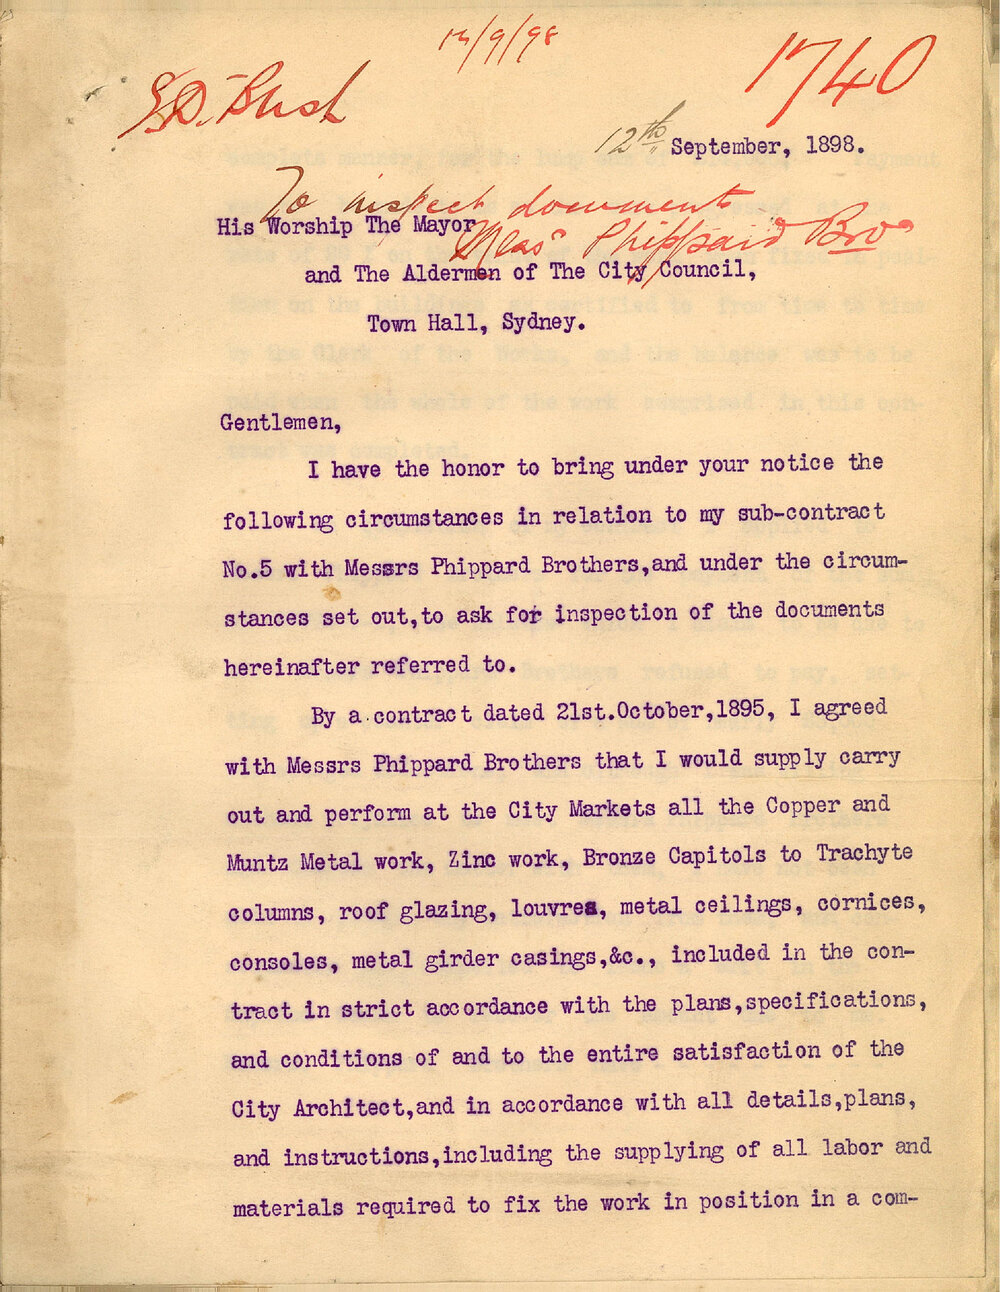 13/9/98
1740
E.D. Bush
12th September, 1898.
To inspect documents
Messrs Phippard Bros
His Worship The Mayor
and The Aldermen of The City Council,
Town Hall, Sydney.
Gentlemen,
I have the honor to bring under your notice the
following circumstances in relation to my sub-contract
No.5 with Messrs Phippard Brothers,and under the circum-
stances set out,to ask for inspection of the documents
hereinafter referred to.
By a contract dated 21st.October,1895, I agreed
with Messrs Phippard Brothers that I would supply carry
out and perform at the City Markets all the Copper and
Muntz Metal work, Zinc work, Bronze Capitols to Trachyte
columns, roof glazing, louvres, metal ceilings, cornices,
consoles, metal girder casings,&c., included in the con-
tract in strict accordance with the plans,specifications,
and conditions of and to the entire satisfaction of the
City Architect,and in accordance with all details,plans,
and instructions,including the supplying of all labor and
materials required to fix the work in position in a com-